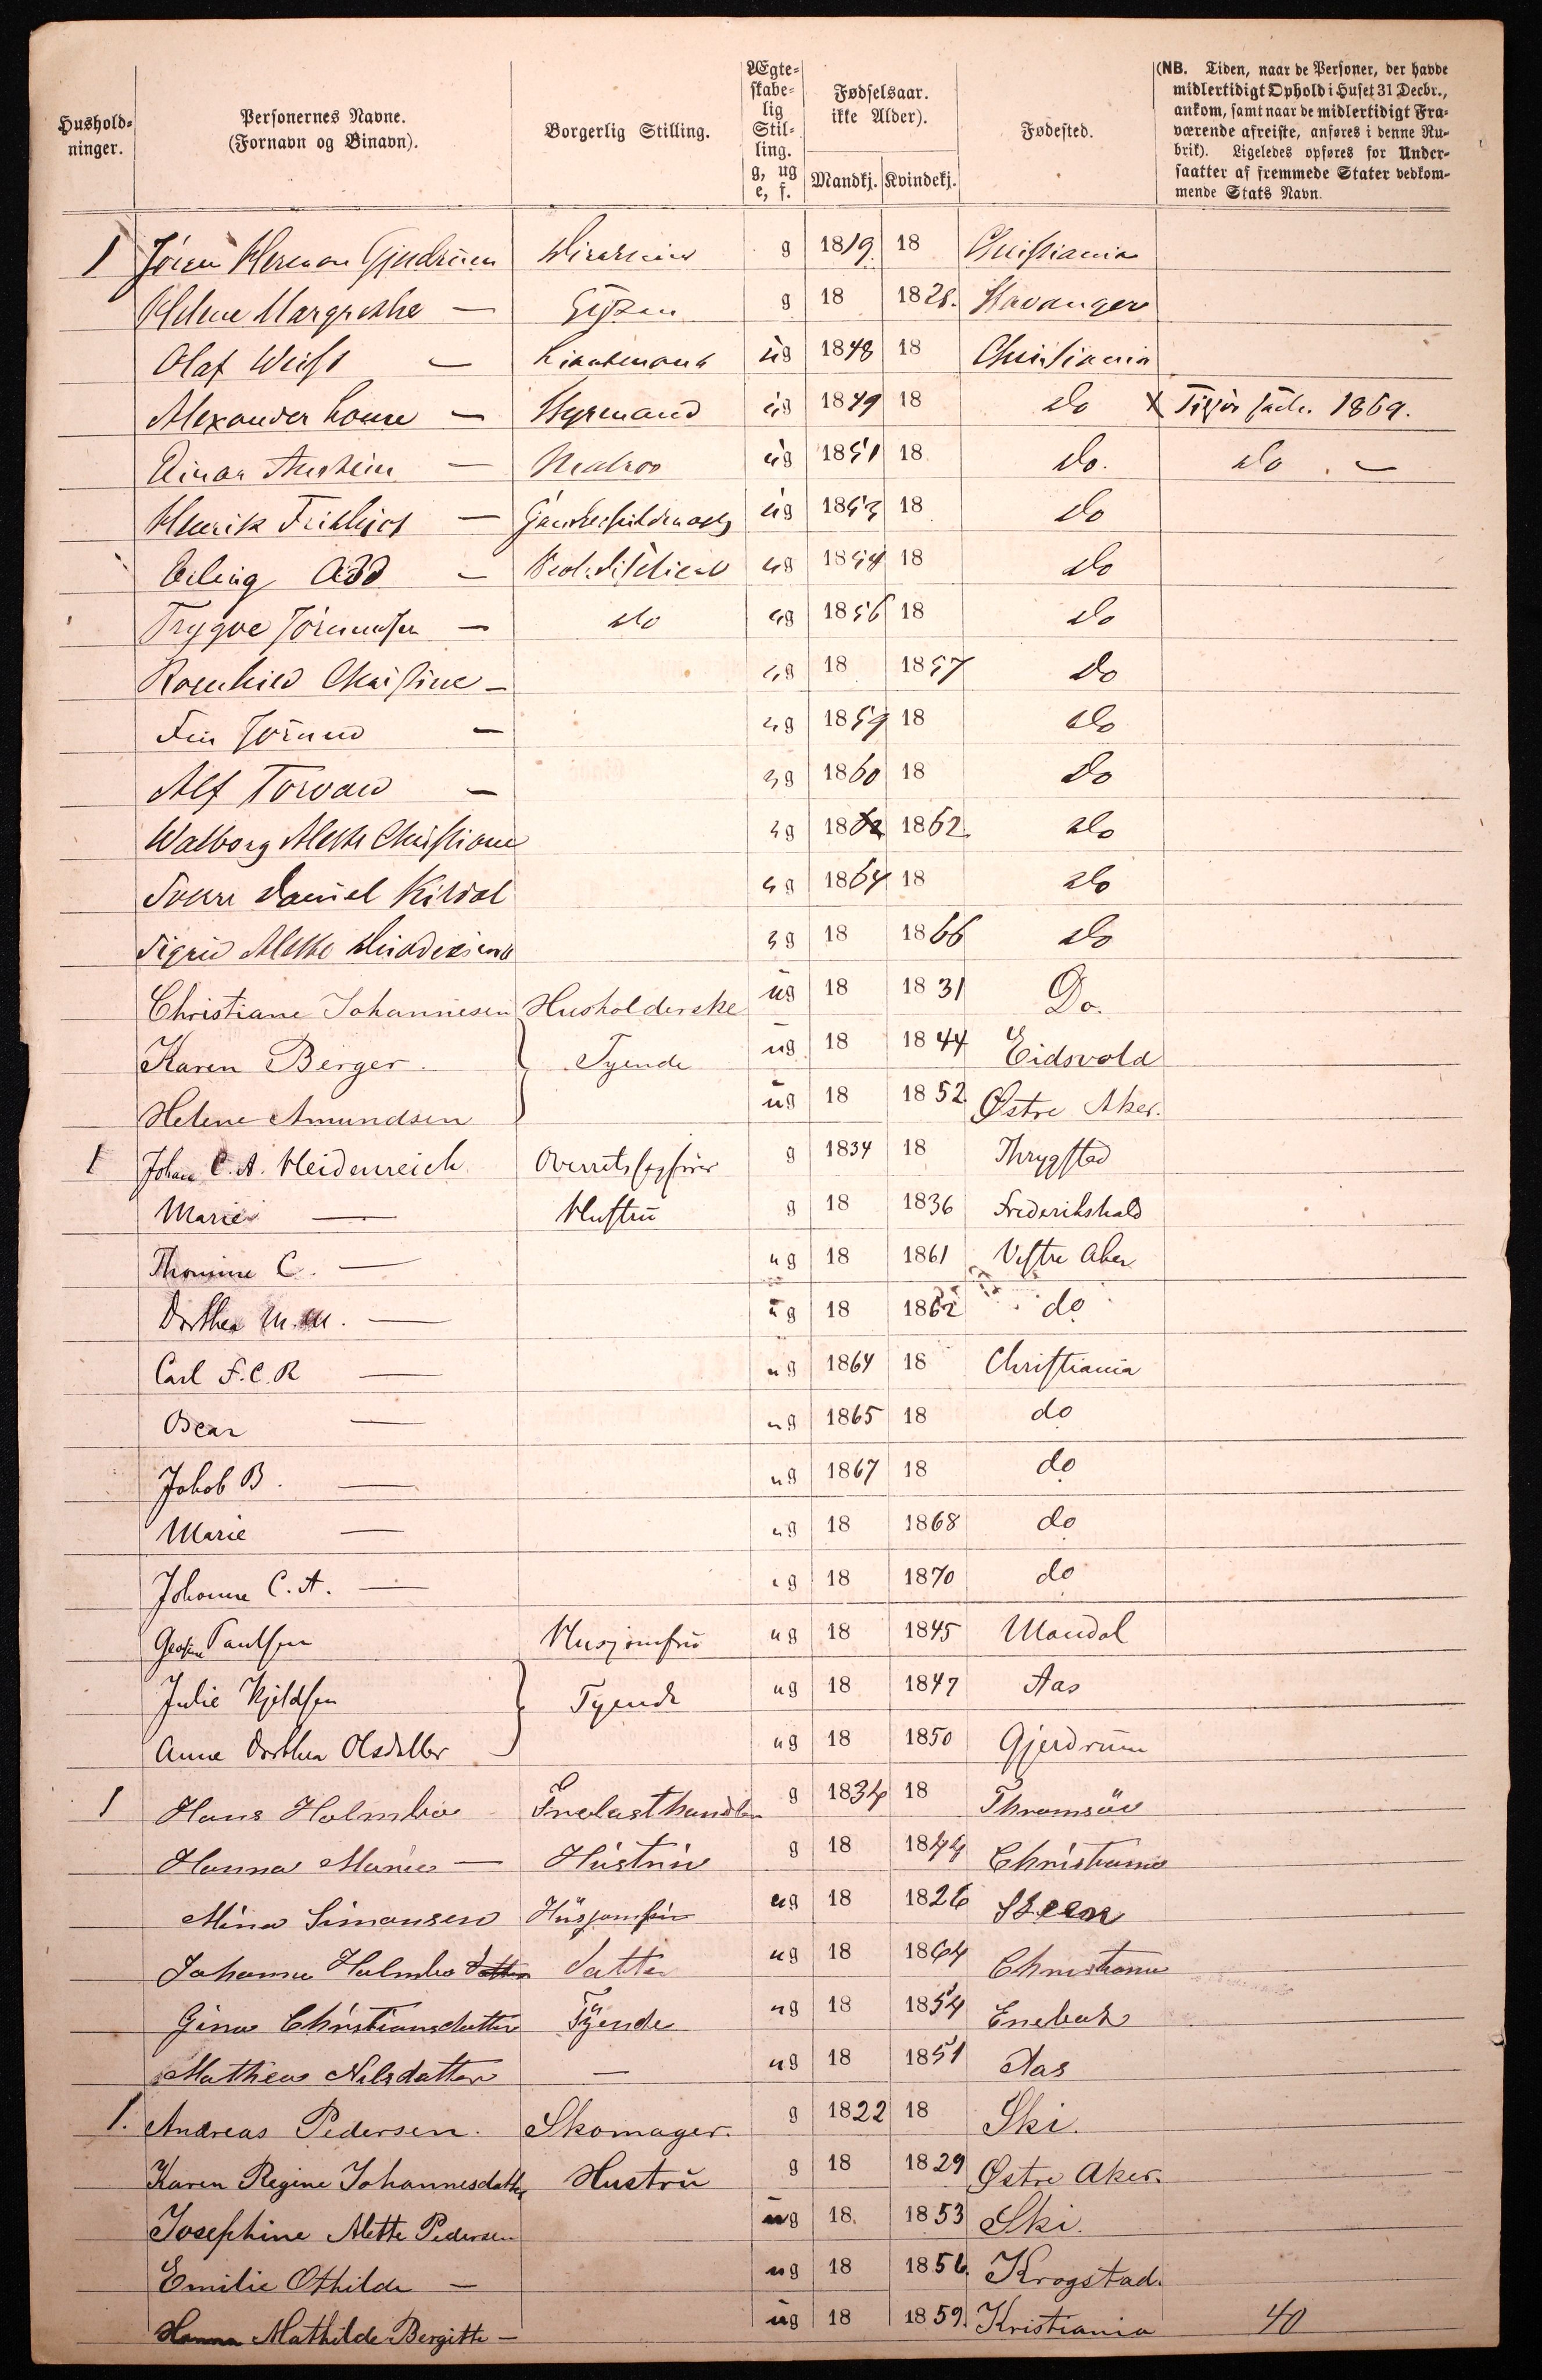 Hushold-
ninger.
Personernes Navne.
(Fornavn og Binavn).
Borgerlig Stilling.
Ægte-
skabe-
lig
Stil-
ling.
g, ug
e, f.
Fødselsaar.
ikke Alder).
Mandkj. Kvindekj.
Fødested.
(NB. Tiden, naar de Personer, der havde
midlertidigt Ophold i Huset 31 Decbr.,
ankom, samt naar de midlertidigt Fra-
værende afreiste, anføres i denne Ru-
brik). Ligeledes opføres for Under-
saatter af fremmede Stater vedkom-
mende Stats Navn.
1 Herman g 1819. 18 Christiania
Helene Margrethe — g 18 1828. Stavanger
Olaf — ug 1848 18 Christiania
Alexander — Styrmand ug 1849 18 do X 1869.
Einar — Matros ug 1851 18 do. do. —
Henrik — ug 1853 18 do
Erling Odd — ug 1854 18 do
Trygve — do ug 1856 18 do
Christine — ug 18 1857 do
— ug 1859 18 do
Alf Torvald — ug 1860 18 do
Walborg Alette Christiane ug 18 1862. do
Daniel Kildal ug 1864 18 do
Sigrid Alette ug 18 1866 do
Christiane Johannesen Husholderske ug 18 1831 Do.
Karen Berger. Tyende ug 18 1844 Eidsvold
Helene Amundsen ug 18 1852. Østre Aker.
1 Johan C. A. Heidenreich Overretssagfører g 1834 18 Thrygstad
Marie — Hustru g 18 1836 Frederikshald
Thomine C. — ug 18 1861 Vestre Aker
Dorthea M. M. — ug 18 1862 do
Carl F. C. R — ug 1864 18 Christiania
Oscar — ug 1865 18 do
Jakob B. — ug 1867 18 do
Marie — ug 18 1868 do
Johanne C. A. — ug 18 1870 do
Paulsen Husjomfru ug 18 1845 Mandal
Julie Kjeldsen Tyende ug 18 1847 Aas
Anne Dorthea Olsdatter ug 18 1850 Gjerdrum
1 Hans Holmboe Trælasthandler g 1834 18 Thromsöe
Hanna Marie — Hustru g 18 1844 Christiania
Mina Simonsen Husjomfru ug 18 1826 Skeen
Johanne Holmboe Datter ug 18 1864 Christiania
Gina Christiansdatter Tyende ug 18 1854 Enebak
Mathea Nilsdatter — ug 18 1851 Aas
1. Andreas Pedersen. Skomager. g 1822 18 Ski.
Karen Regine Johannesdatter Hustru g 18 1829 Østre Aker.
Josephine Alette Pedersen ug 18. 1853 Ski.
Emilie Othilde — ug 18 1856. Krogstad.
Mathilde Bergitte — ug 18 1859. Kristiania 40